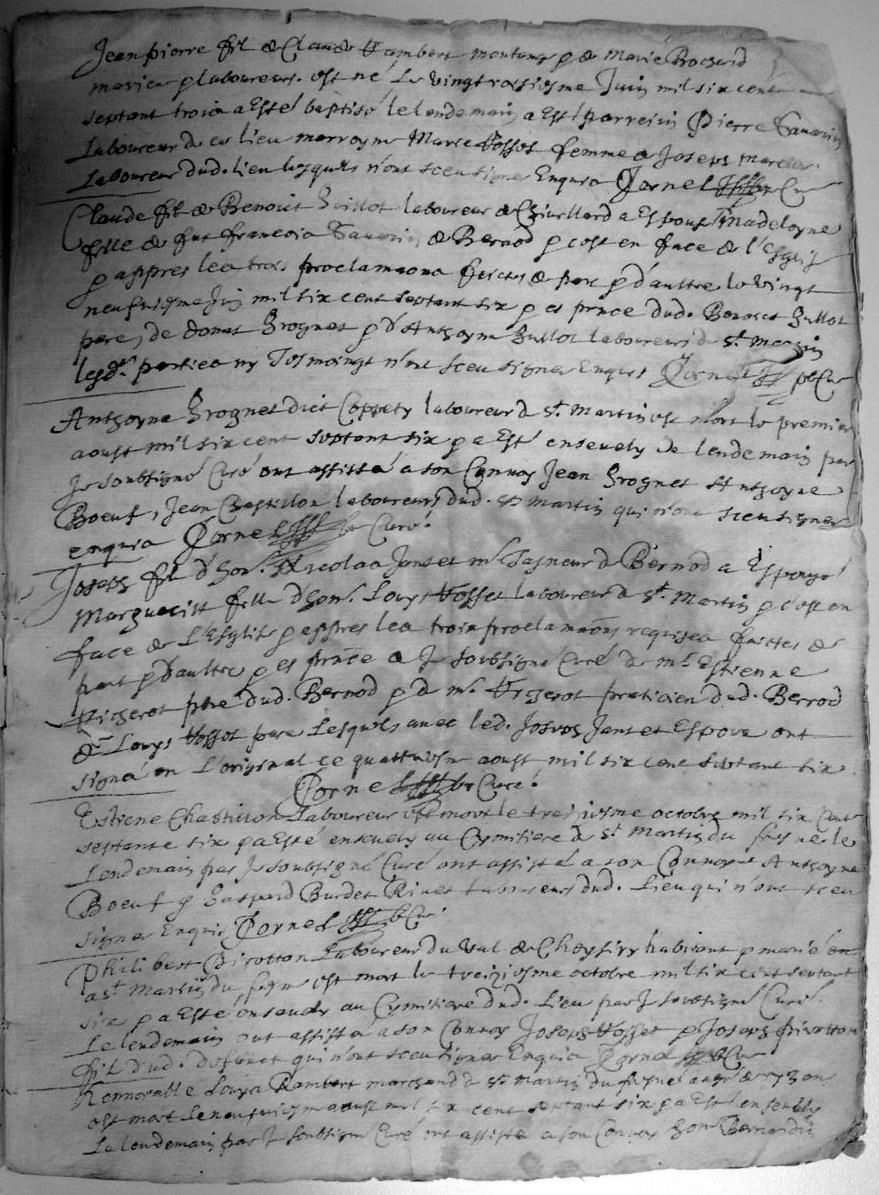 Jean pierre fil de Claude Humbert montant & de Marie Brochard
mariez & laboureurs est né le vingt troisiesme Juin mil six cent
septant trois a Esté baptisé le lendemain a Esté parrein Pierre
Laboureur de ce lieu marroyne Marie Vosset femme a Joseph
Laboureur dud. lieu lesquels n'ont sceu signer Enquis Cornel Cu
Claude fil de Benoict laboureur de a Espousé Madeloyne
fille de fut francois de Bernod & cest en face de l'Esglis
& appres les trois proclamaons faictes de part & d'aultre le vingt
neufuiesme Jin mil six cent septant six & es pnce dud. Benoict Gullot
pere, de Donat Grognet & d'Anthoyne Gullot laboureurs de St. Martin
lesd. parties ny Tesmoingt n'ont sceu signer Enquis Cornel Cur
Anthoyne Grognet dict Coppety laboureur de St. Martin est mort le premier
aoust mil six cent septant six & a Esté ensevely le lendemain par
Je soubsigné Curé ont assisté a son Convoy Jean Grognet Anthoyne
Boeuf, Jean Chastillon laboureurs dud. St Martin qui n'ont sceu signer
enquis Cornel Curé.
Joseph fil d'hon. Nicolas Jantet me de Bernod a Espousé
Marguerite fille d'hon. Louys Vosset laboureur de St. Martin & c'est en
face de L'Esglise & appres les trois proclamaons requises faictes de
part & d'aultre & es pnce de Je soubsigné Curé de mr Estienne
pbre dud. Bernod & de mr. praticien dud. Bernod
& Louys Vosset pere Lesquels avec led. Joseph Jantet Espoux ont
signé en L'original ce quattriesme aoust mil six cent septant six
Cornel Curé.
Estiene Chastillon Laboureur est mort le treiziesme octobre mil six Cent
septante six & a Esté ensevely au Cymitiere de St Martin du fresne le
Lendemain par Je soubsigné Curé ont assisté a son Convoy Anthoyne
Boeuf & Gaspard Burdet Laboureurs dud. Lieu qui n'ont sceu
signer Enquis Cornel Cur
Philibert Pirotton Laboureur du Val de habitant & marié
a St Martin du fresne est mort le treiziesme octobre mil six cent septant
six & a Esté ensevely au Cymitiere dud. Lieu par Je soubsigné Curé.
Le lendemain ont assisté a son Convoy Joseph Vosset & Joseph Pirotton
fil dud. deffunct qui n'ont sceu signer Enquis Cornel Cur
Honnorable Louys Rambert marchand de St Martin du fresne
est mort le neufuiesme aoust mil six cent septant six & a Esté ensevely
Le lendemain par Je soubsigné Curé ont assisté a son Convoy hon. Bernardin